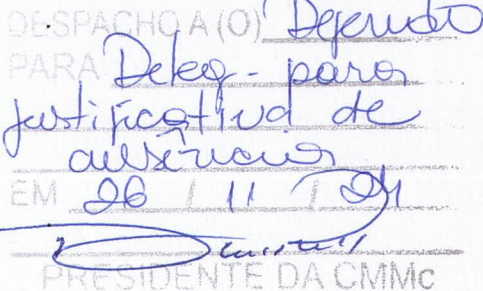 DESPACHO A (O) Dejurdto
PARA Deleg - para
justificativa de
ausência
EM 26 / 11 / 24
PRESIDENTE DA CMMc